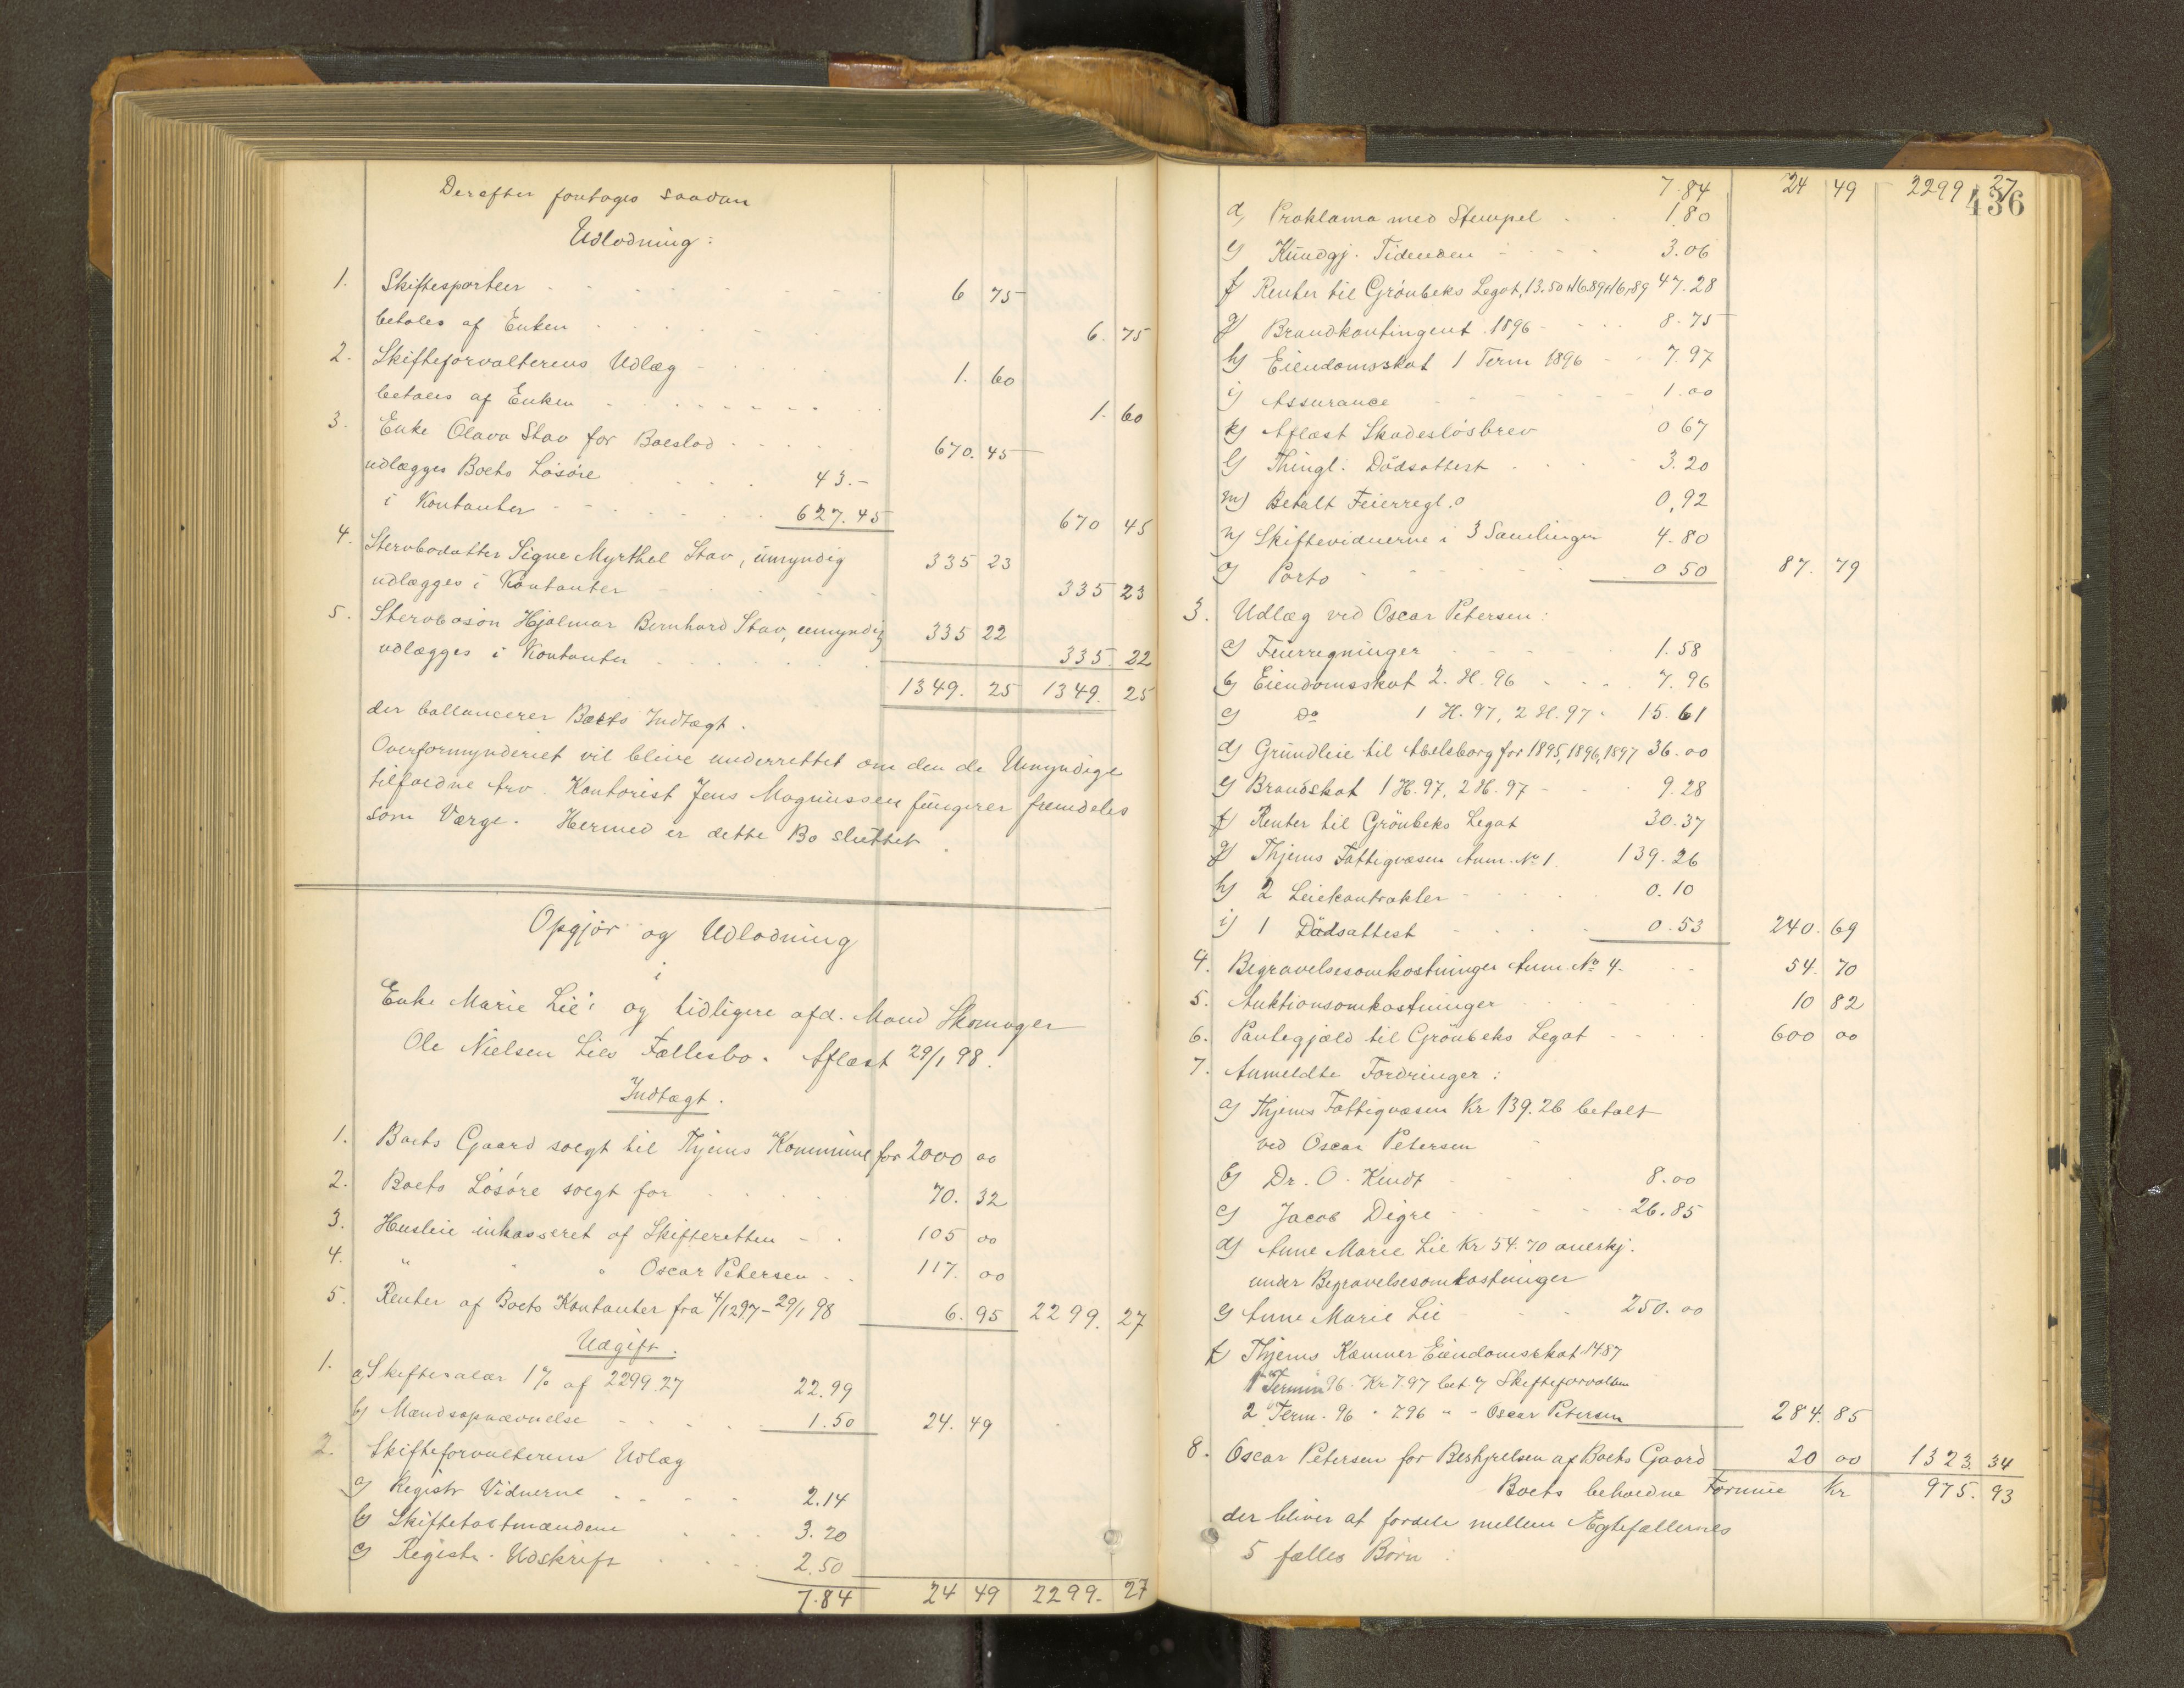 Derefter foretages saadan
Udlodning:
1. Skiftesportler 6 75
betales af Enken 6. 75
2. Skifteforvalterens Udlæg 1. 60
betales af Enken 1. 60
3. Enke Olava Stav for Boeslod 670. 45
udlægges Boets Løsøre 43.-
i Kontanter 627.45 670 45
4. Stervbodatter Signe Myrthel Stav, umyndig 335 23
udlægges i Kontanter 335 23
5. Stervbosøn Hjalmar Bernhard Stav, umyndig 335 22
udlægges i Kontanter 335. 22
1349. 25 1349. 25
der ballancerer Boets Indtægt.
Overformynderiet vil blive underrettet om den de Umyndige
tilfaldne Arv. Kontorist Jens Magnussen fungerer fremdeles
som Værge. Hermed er dette Bo sluttet.
Opgjør og Udlodning
i
Enke Marie Lie's og tidligere afd. Mand Skomager
Ole Nielsen Lies Fællesbo. Aflæst 29/1 98.
Indtægt.
1. Boets Gaard solgt til Thjems Kommune for 2000 00
2. Boets Løsøre solgt for 70. 32
3. Husleie inkasseret af Skifteretten 105 00
4. " " " Oscar Petersen 117. 00
5. Renter af Boets Kontanter fra 4/1297-29/1 98 6. 95 2299. 27
Udgift.
1. a) Skiftesalær 1% af 2299.27 22.99
b) Mændsopnævnelse 1.50 24. 49
2. Skifteforvalterens Udlæg
a) Registr Vidnerne 2.14
b) Skiftetaxtmændene 3.20
c) Registr. Udskrift 2.50
7.84 24 49 2299. 27
436
7.84 24 49 2299 27
d) Proklama med Stempel 1.80
e) Kundgj. Tidenden 3.06
f) Renter til Grønbeks Legat, 13.50+16.89+16,89 47.28
g) Brandkontingent 1896 8.75
h) Eiendomsskat 1 Term 1896 7.97
i) Assurance 1.00
k) Aflæst Skadesløsbrev 0 67
l) Thingl. Dödsattest 3.20
m) Betalt Feierregl. 0,92
n) Skiftevidnerne i 3 Samlinger 4.80
o) Porto 0 50 87. 79
3. Udlæg ved Oscar Petersen:
a) Feierregninger 1.58
b) Eiendomsskat 2. H. 96 7.96
c) Do 1 H. 97, 2 H. 97 15.61
d) Grundleie til Abelsborg for 1895, 1896, 1897 36.00
e) Brandskat 1 H. 97, 2 H. 97 9.28
f) Renter til Grönbeks Legat 30.37
g) Thjems Fattigvæsen Anm. No 1. 139.26
h) 2 Leiekontrakter 0.10
i) 1 Dødsattest 0.53 240. 69
4. Begravelsesomkostninger Anm. No 4. 54. 70
5. Auktionsomkostninger 10 82
6. Pantegjæld til Grönbeks Legat 600 00
7. Anmeldte Fordringer:
a) Thjems Fattigvæsen Kr 139.26 betalt
ved Oscar Petersen
b) Dr. O. Kindt 8.00
c) Jacob Digre 26.85
d) Anne Marie Lie Kr 54.70 anerkj.
under Begravelsesomkostninger
e) Anne Marie Lie 250.00
f) Thjems Kæmner Eiendomsskat 1487
1 Termin 96 Kr 7.97 bet. Skifteforvalteren
2 Term. 96 " 7.96 " " Oscar Petersen 284. 85
8. Oscar Petersen for Bestyrelsen af Boets Gaard 20 00 1323. 34
Boets beholdne Formue Kr 975. 93
der bliver at fordele mellem Ægtefællernes
5 fælles Børn: